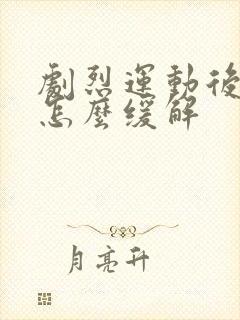 劇烈運動後
怎麼缓解
月亮升